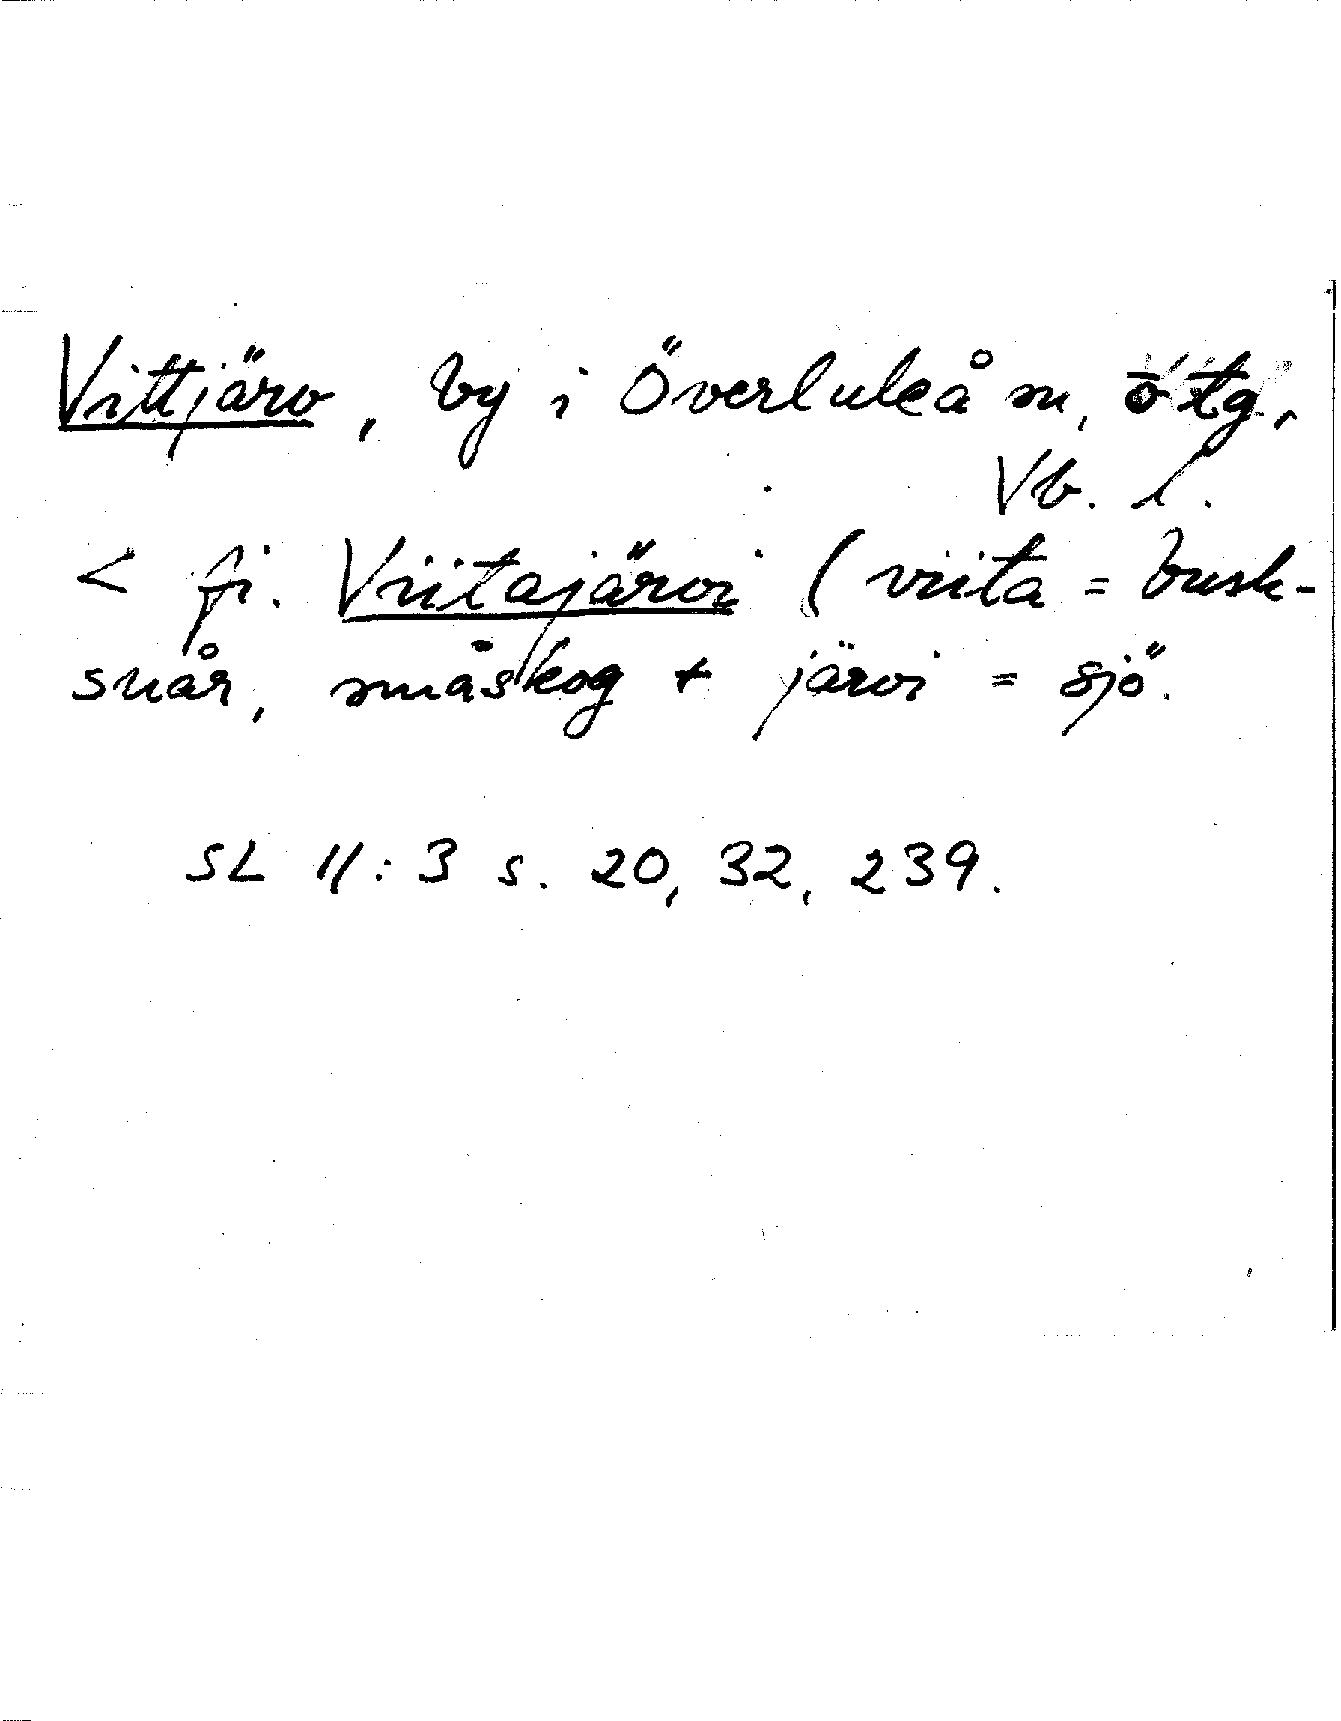 Vittjärv, by i Överluleå sn, ö tg,
Vb. l.
< fi. Viitajärvi (viita = busk-
snår, småskog + järvi = sjö.
SL 11:3 s. 20, 32, 239.